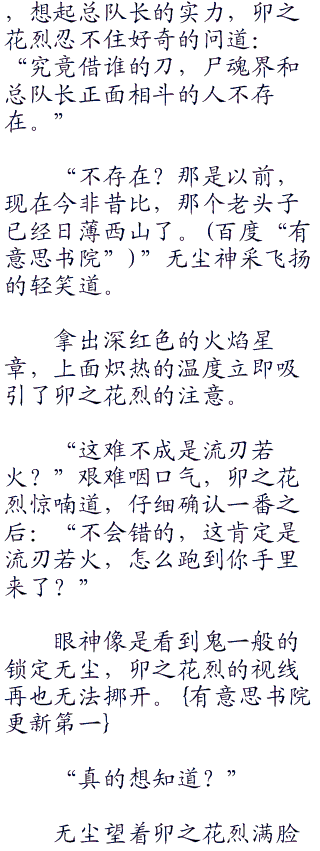 ，想起总队长的实力，卯之
花烈忍不住好奇的问道：
“究竟借谁的刀，尸魂界和
总队长正面相斗的人不存
在。”
“不存在？那是以前，
现在今非昔比，那个老头子
已经日薄西山了。(百度“有
意思书院”)”无尘神采飞扬
的轻笑道。
拿出深红色的火焰星
章，上面炽热的温度立即吸
引了卯之花烈的注意。
“这难不成是流刃若
火？”艰难咽口气，卯之花
烈惊喃道，仔细确认一番之
后：“不会错的，这肯定是
流刃若火，怎么跑到你手里
来了？”
眼神像是看到鬼一般的
锁定无尘，卯之花烈的视线
再也无法挪开。{有意思书院
更新第一}
“真的想知道？”
无尘望着卯之花烈满脸